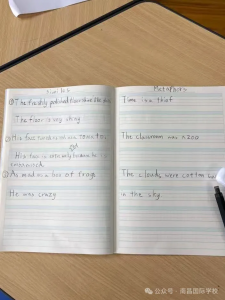 Similes
① The freshly polished floor shone like
The floor is very shiny
② His face turned as red as a
His face is extremely
③ As mad as a box of frogs
He was crazy
Metaphors
Time is a thief
The classroom was a zoo
The clouds were cotton
in the sky
公众号 · 南昌国际学校